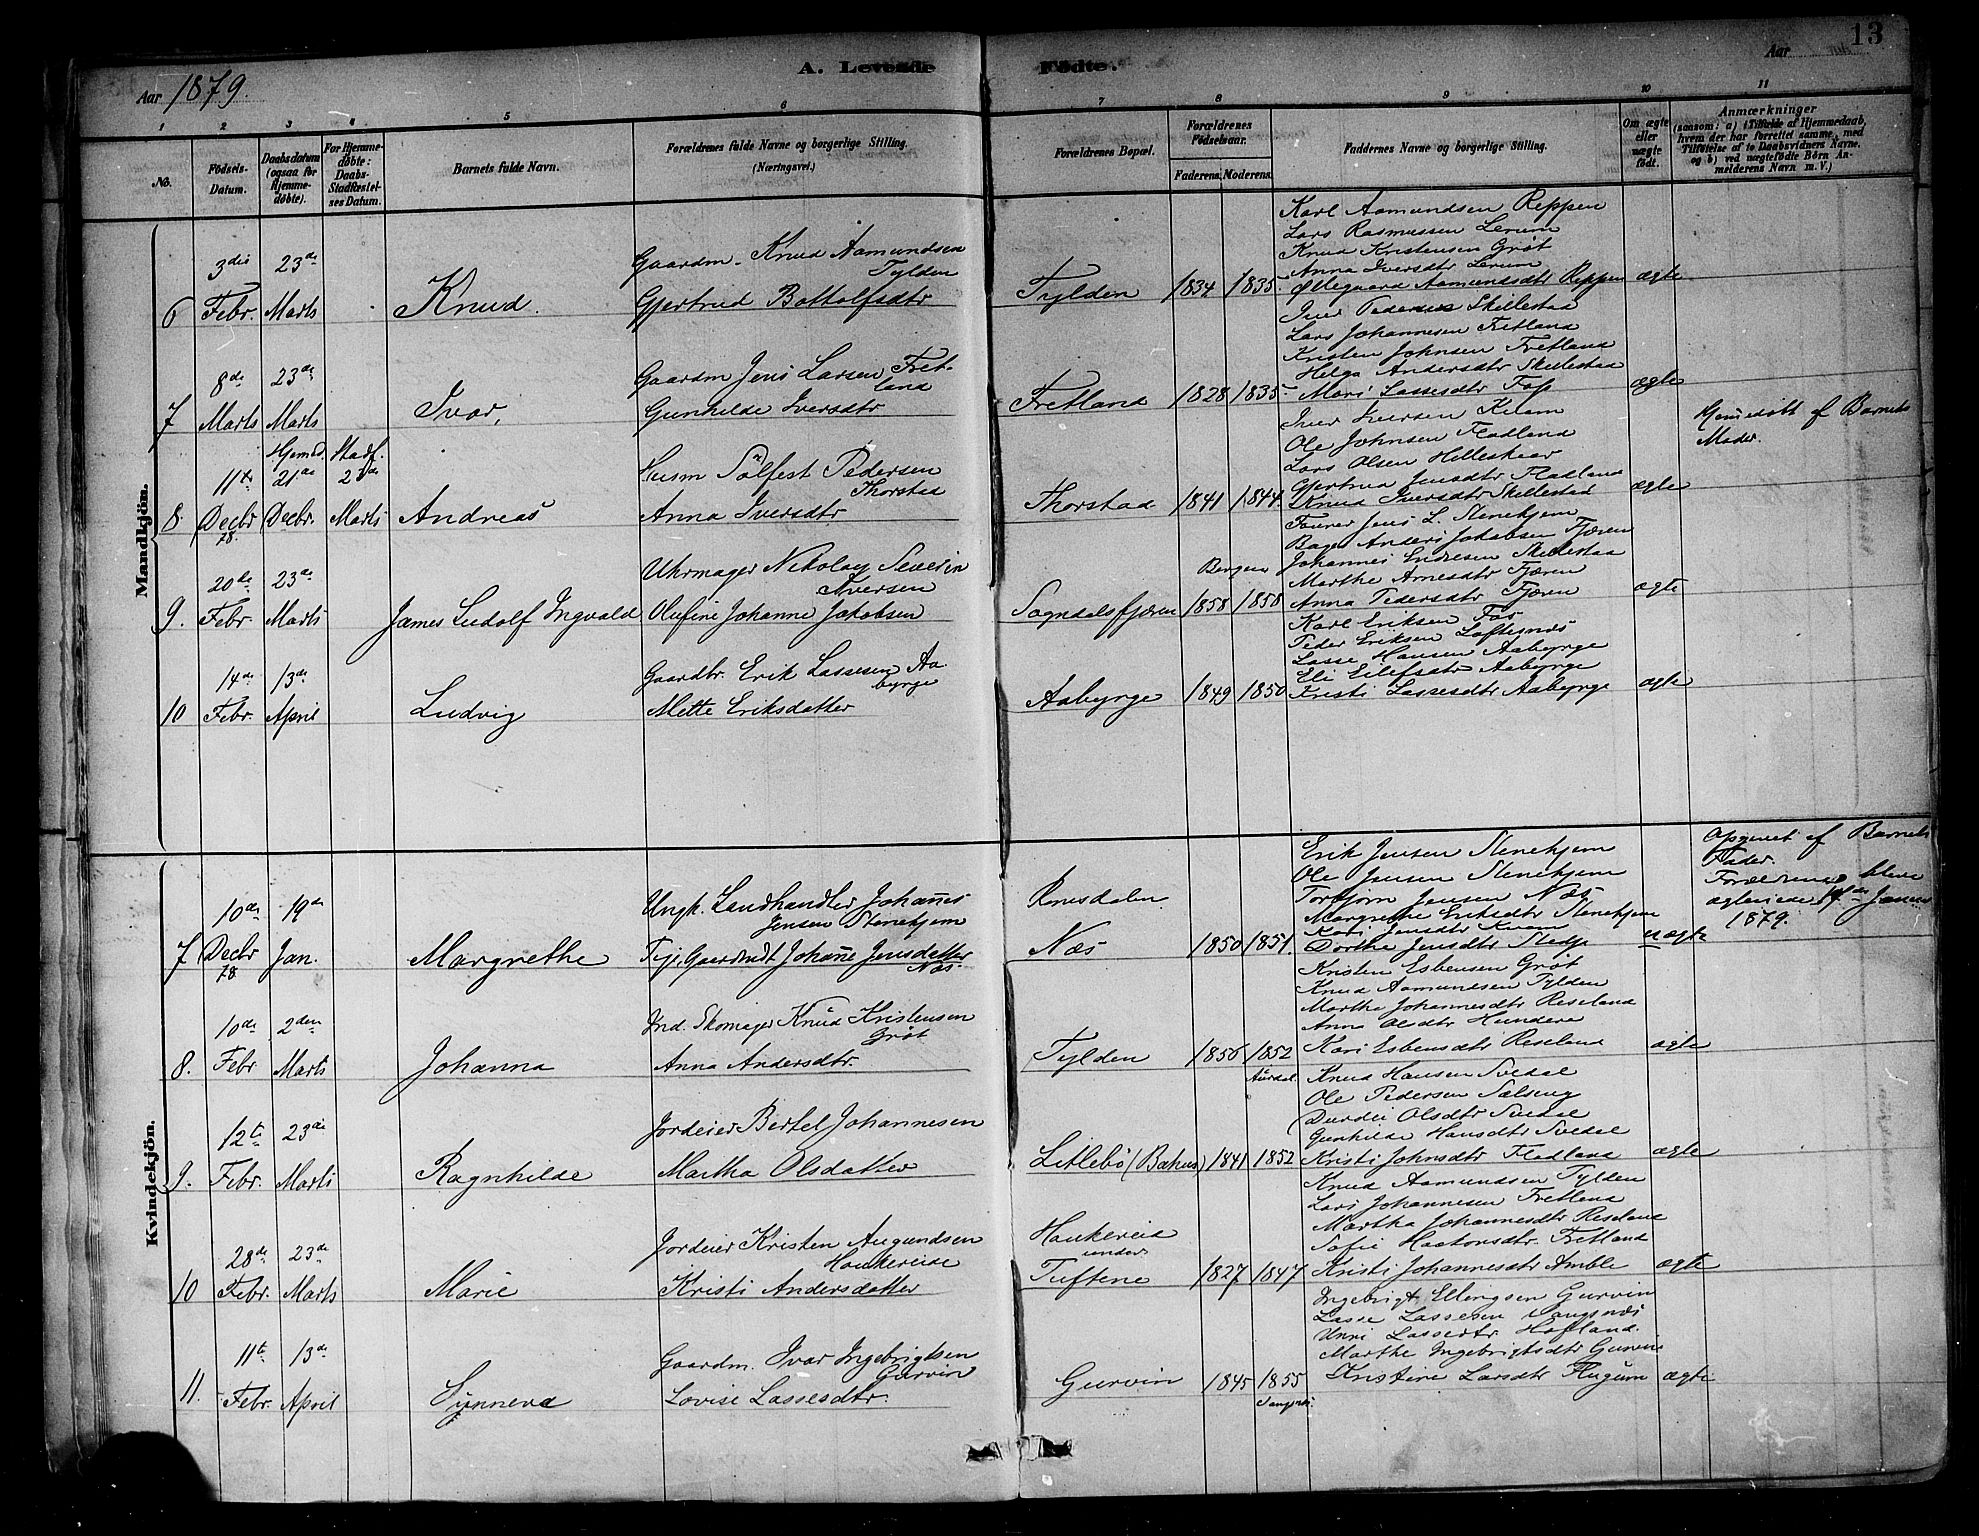 13
A. Levende Fødte.
Aar 1879.
Aar
1 2 3 4 5 6 7 8 9 10 11
No.
Fødsels-Datum.
Daabsdatum (ogsaa for Hjemmedøbte).
For Hjemmedøbte: Daabs-Stadfæstelses Datum.
Barnets fulde Navn.
Forældrenes fulde Navne og borgerlige Stilling. (Næringsvei.)
Forældrenes Bopæl.
Forældrenes Fødselsaar.
Faderens. Moderens.
Faddernes Navne og borgerlige Stilling.
Om ægte eller uægte født.
Anmærkninger
(saasom: a) i Tilfælde af Hjemmedaab, hvem der har forrettet samme, med Tilføielse af to Daabsvidners Navne, og b) ved uægtefødte Børn Anmelderens Navn m. V.)
Mandkjön.
6 3die Febr. 23de Marts
Knud.
Gaardm. Knud Aamundsen Tylden
Gjertrud Bottolfsdtr
Tylden 1834 1835
Karl Aamundsen Reppen
Lars Rasmussen Lerum
Knud Kristensen Grøt
Anna Iversdtr Lerum
Ollegaard Aamundsdtr Reppen
ægte
7 8de Marts 23de Marts
Ivar,
Gaardm Jens Larsen Fretland
Gunhilde Iversdtr
Fretland 1828 1835
Iver Pedersen Skellestad
Lars Johannesen Fretland
Kristen Johnsen Fretland
Helga Andersdtr Skellestad
Mari Lassesdtr Foss
ægte
8. 11te Decbr 78. Hjemd. 21de Decbr. Stadf. 23de Marts
Andreas
Husm Sølfest Pedersen Thorstad
Anna Iversdtr
Thorstad 1841 1844.
Iver Iversen Kvam
Ole Johnsen Fladland
Lars Olsen Helleskaar
Gjertrud Jensdtr Fladland
Knud Iversdtr Skellestad
ægte
Hjemedøbt af Barnets Moder.
9. 20de Febr 23de Marts
James Ludolf Ingvald
Uhrmager Nikolay Severin Iversen
Olufine Johanne Jakobsen
Sogndalsfjæren Bergen 1858 1858
Jens L. Stenehjem
Bager Anders Jakobsen Fjæren
Johannes Endresen Skellestad
Marthe Arnesdtr Fjæren
Anna Pedersdtr Fjæren
ægte
10 14de Febr. 13de April
Ludvig
Gaardbr. Erik Lassesen Aabyrge
Mette Eriksdatter
Aabyrge 1849 1850
Karl Eriksen Fos
Peder Eriksen Loftesnæs
Lasse Hansen Aabyrge
Eli Eilefsdtr Aabyrge
Kristi Lassesdtr Aabyrge
ægte
Kvindekjön.
7 10de Decbr 78 19de Jan.
Margrethe
Ungk. Landhandler Johannes Jensen Stenehjem
Pige, Gaardmdt Johanne Jensdatter Næs
Rnesdalen
Næs 1850 1851.
Erik Jensen Stenehjem
Ole Jensen Stenehjem
Torbjørn Jensen Næs
Margrethe Eriksdtr Stenehjem
Kari Jensdtr Kvam
Dorthe Jensdtr Stedje
uægte
Opgivet af Barnets Fader.
Forældrene bleve
1879.
8. 10de Febr 2den Marts
Johanna
Ind. Skomager Knud Kristensen Grøt
Anna Andersdtr.
Tylden 1856 1852
Aurdal
Kristen Esbensen Grøt
Knud Aamundsen Tylden
Martha Johannesdtr Reseland
Anna Olsdtr Hundere
Kari Esbensdtr Reseland
ægte
9. 12te Febr. 23de Marts
Ragnhilde
Jordeier Bertel Johannesen
Martha Olsdatter
Litlebø (Bakus) 1841 1852
Knud Hansen Svedal
Ole Pedersen Sølseng
Durdei Olsdtr Svedal
Gunhilde Hansdtr Svedal
Kristi Johnsdtr Fladland
ægte
10 28de Febr. 23de Marts
Marie
Jordeier Kristen Augundsen Haukereid
Kristi Andersdatter
Haukereid under Tuftene 1827 1847
Knud Aamundsen Tylden
Lars Johannesen Fretland
Martha Johannesdtr Reseland
Sofie Haakonsdtr. Fretland
Kristi Johannesdtr Amble
ægte
11. 11te Febr 13de April
Synneva
Gaardm. Ivar Ingebrigtsen Gurvin
Lovise Lassesdtr.
Gurvin 1845 1855
Ingebrigt Ellingsen Gurvin
Lasse Lassesen Langnæs
Unni Lassesdtr. Hofland.
Marthe Ingebrigtsdtr Gurvin
Kristine Larsdtr Flugum
ægte